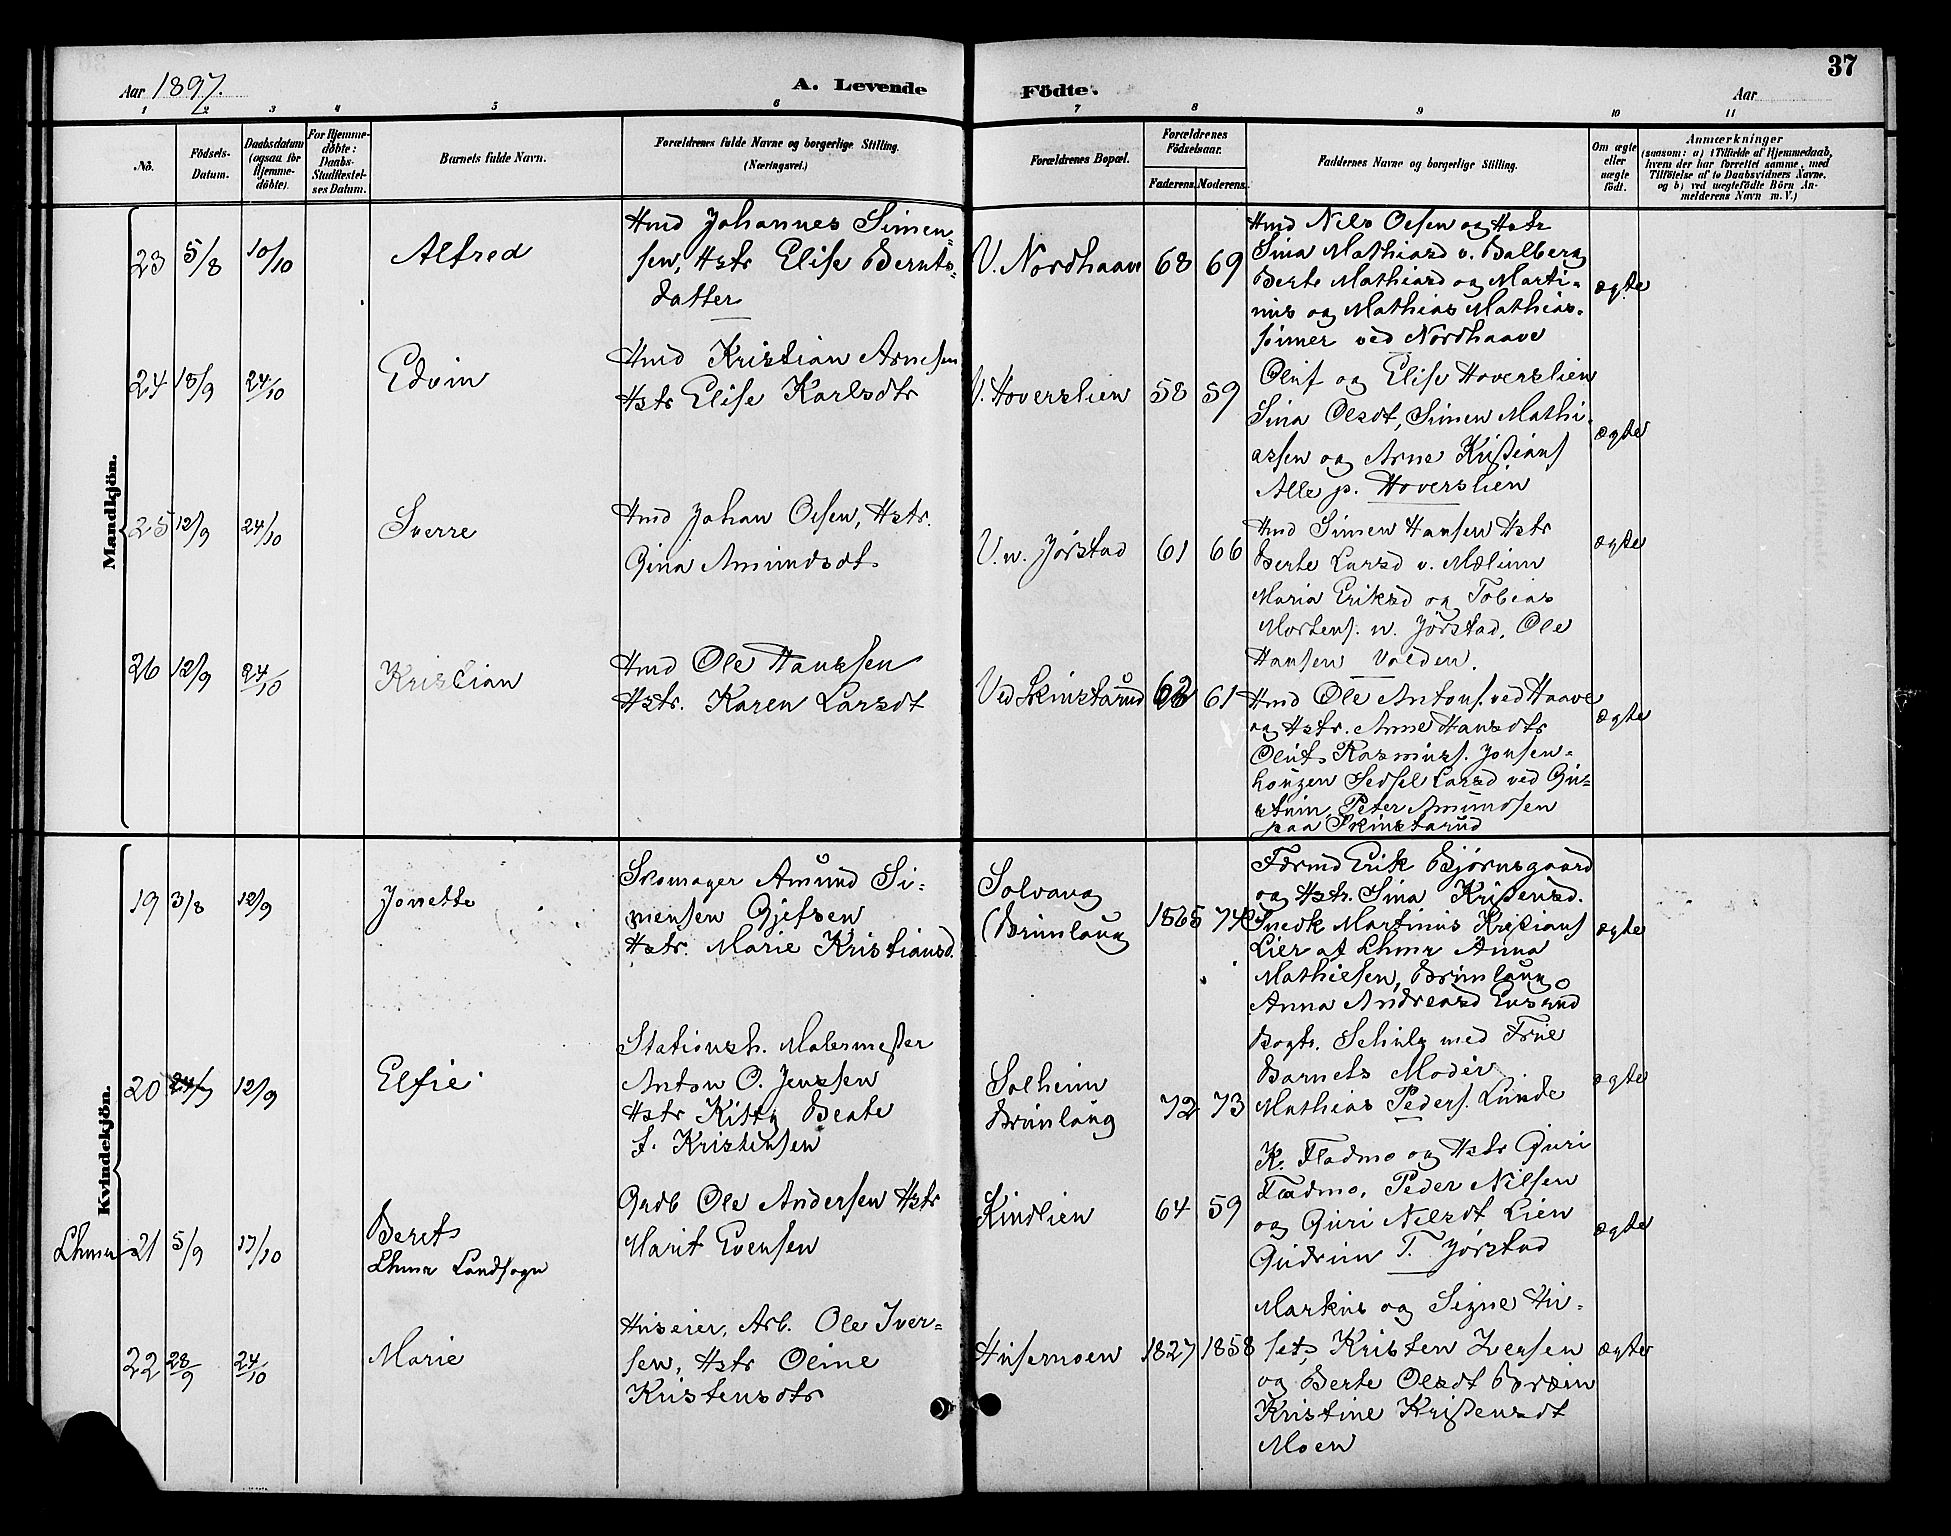 37
Aar 1897.
A. Levende Födte.
Aar
1 2 3 4 5 6 7 8 9 10 11
No.
Födsels-Datum.
Daabsdatum (ogsaa for Hjemmedöbte).
For Hjemmedöbte: Daabs-Stadfæstelses Datum.
Barnets fulde Navn.
Forældrenes fulde Navne og borgerlige Stilling. (Næringsvei.)
Forældrenes Bopæl.
Forældrenes Födselsaar.
Faderens. Moderens.
Faddernes Navne og borgerlige Stilling.
Om ægte eller uægte födt.
Anmærkninger
(saasom: a) i Tilfælde af Hjemmedaab,
hvem der har forrettet samme, med
Tilföielse af to Daabsvidners Navne,
og b) ved uægtefödte Börn Anmelderens Navn m. V.)
Mandkjön.
23 5/8 10/10 Alfred
Hmd Johannes Simen-
sen, Hstr Elise Bernts-
datter
V. Nordhaave 68 69
Hmd Nils Olsen og Hstr
Sina Mathiasd v. Balberg
Berte Mathiasd og Marti-
nus og Mathias Mathias-
sønner ved Nordhaave
ægte
24 13/9 24/10 Edvin
Hmd Kristian Arnesen
Hstr Elise Karlsdtr
V. Hoverslien 58 59
Oluf og Elise Hoverslien
Sina Olsdt, Simen Mathi-
assen og Arne Kristians
Alle p. Hoverslien
ægte
25 12/9 24/10 Sverre
Hmd Johan Olsen, Hstr.
Gina Amundsdt.
V. n. Jørstad 61 66
Hmd Simen Hansen Hstr
Berte Larsd v. Mælum
Maria Eriksd og Tobias
Mortens. n. Jørstad, Ole
Hansen Volden.
ægte
26 12/9 24/10 Kristian
Hmd Ole Hanssen
Hstr. Karen Larsdt
Ved Skinstarud 62 61
Hmd Ole Antons. ved Haave
og Hstr. Anne Hansdtr
Oluf Rasmuss. Jonsen-
hougen Sedsel Larsd ved
Peter Amundsen
paa Skinstarud
ægte
Kvindekjön.
19 3/8 12/9 Jonette
Skomager Amund Si-
mensen Gjefsen
Hstr. Marie Kristiansd.
Solvang
(Brunlaug 1865 74
Færmd Erik Bjørnsgaard
og Hstr. Sina Kristensd.
Snedk Martinus Kristians
Lier af Lhmr Anna
Mathiesen, Brunlaug
Anna Andreasd
ægte
20 12/9 Elfie
Stationsh. Malermester
Anton O. Jenssen
Hstr Kitty Beate
f. Kristensen
Solheim
Brunlaug 72 73
Bogtr. Schulz med Frue
Barnets Moder
Mathias Peders. Lunde
ægte
Lhmr 21 5/9 17/10 Beret
Lhmr Landsogn
Gadb Ole Andersen Hstr
Marit Evensen
Kindlien 64 59
K. Fladmo og Hstr Guri
Fladmo, Peder Nilsen
og Guri Nilsdt Lien
Gudrun T. Jørstad
ægte
22 28/9 24/10 Marie
Huseier, Arb. Ole Iver-
sen, Hstr Oline
Kristensdtr
Husernoen 1827 1858
Markus og Signe Hu-
set, Kristen Iversen
og Berte Olsdt Bræin
Kristine Kristensdt
Moen
ægte